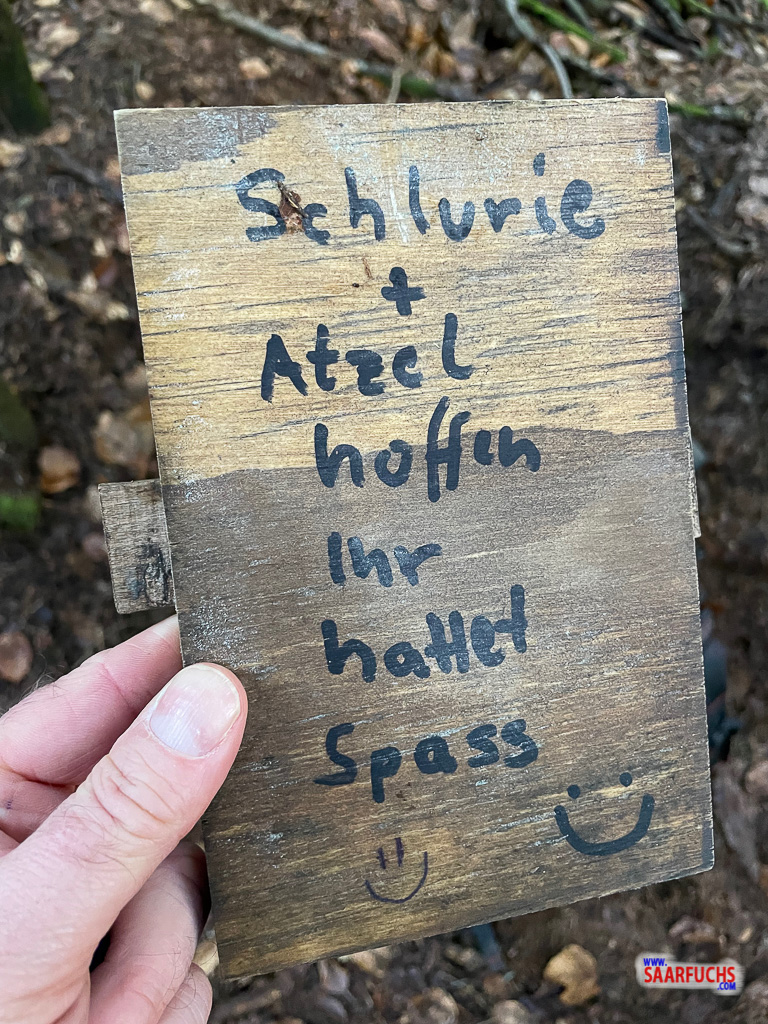 Schlurie
+
Atzel
hoffen
Ihr
hattet
Spass
WWW.
SAARFUCHS
.COM